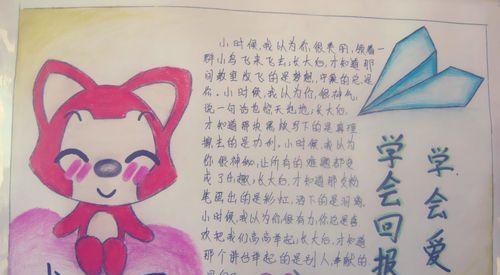 小时候,我认为你很美丽,领着一
群小鸟飞来飞去;长大后,才知道那
间教室放飞的是梦想,守巢的总是
你。小时候,我认为你很神气,
说一句话也惊天动地;长大后,
才知道那块黑板写下的是真理
擦去的是功利。小时候,我认为
你很神秘,让所有的难题都变
成了乐趣;长大后,才知道那支粉
笔画出的是彩虹,洒下的是泪滴
小时候,我认为你很有力,你总是喜
欢把我们高高举起;长大后,才知道
那个讲台举起的是别人,奉献的
学会爱
学会回报